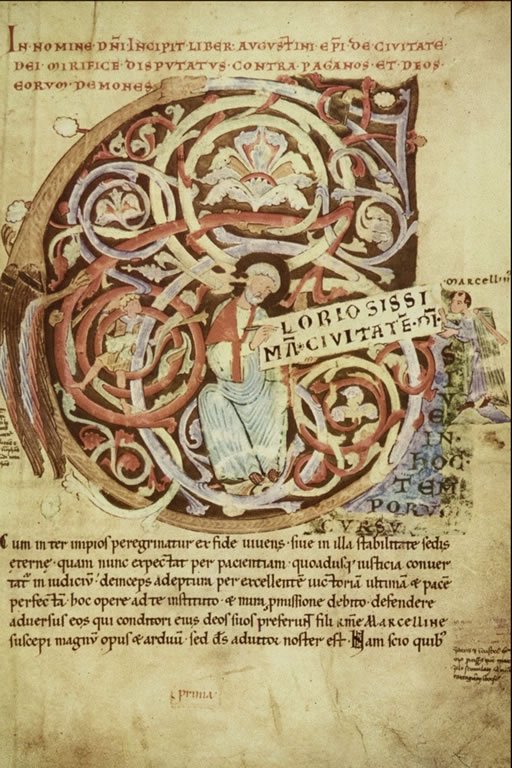 IN NOMINE DNI INCIPIT LIBER AVGVSTINI EPI DE CIVITATE
DEI MIRIFICE DISPVTATVS CONTRA PAGANOS ET DEOS
EORVM DEMONES
MARCELLIN'
LORIOSISSI
MĀ CIVITATĒ DĪ
SIVE
IN
HOC
TEM
PORV
CVRSV
Cum inter impios peregrinatur ex fide uiuens. siue in illa stabilitate sedis
eterne. quam nunc expectat per pacientiam. quoadusq; iusticia conuer
tat in iudiciū. deinceps adeptura per excellentē uictoriā ultimā & pacē
perfectā. hoc opere ad te instituto. & mea pmissione debito. defendere
aduersus eos qui conditori eius deos suos preferunt fili kme MARCELLINE
suscepi. magnū opus & arduū. sed ds adiutor noster est. Nam scio quib'
prima